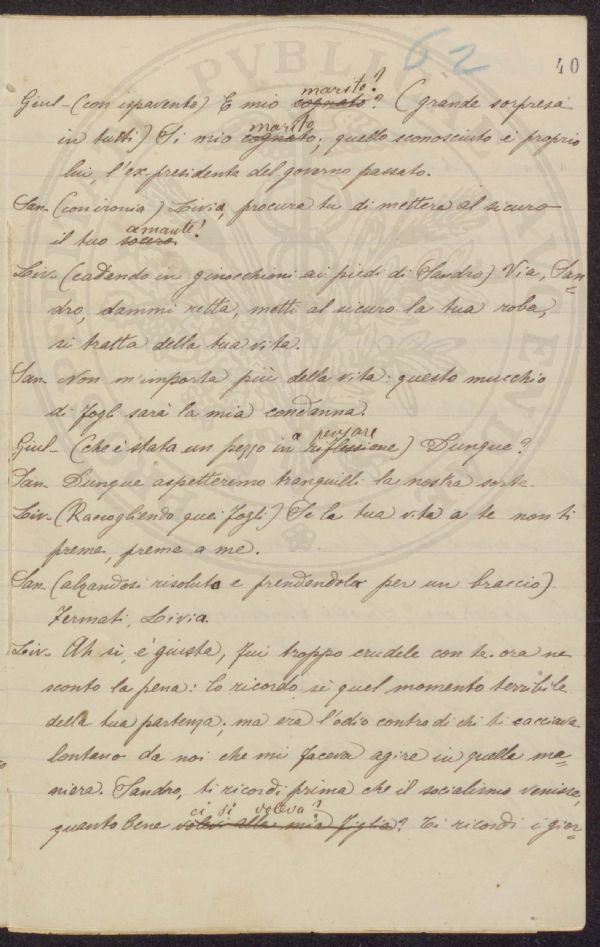 62
40
Giul - (con ispavento) E mio cognato? marito? (grande sorpresa
in tutti) Si mio cognato; marito quello sconosciuto è proprio
lui, l'ex presidente del governo passato.
San. (con ironia) Livia, procura tu di mettere al sicuro
il tuo suocero. amante!
Liv. (cadendo in ginocchioni ai piedi di Sandro) Via, San=
dro, dammi retta, metti al sicuro la tua roba,
si tratta della tua vita.
San. Non m'importa più della vita: questo mucchio
di fogli sarà la mia condanna.
Giul - (che è stata un pezzo in riflessione a pensare) Dunque?
San. Dunque aspetteremo tranquilli la nostra sorte.
Liv. (Raccogliendo quei fogli) Se la tua vita a te non ti
preme, preme a me.
San. (alzandosi risoluto e prendendola per un braccio)
Fermati, Livia.
Liv. Ah si, è giusta, fui troppo crudele con te. ora ne
sconto la pena: lo ricordo si quel momento terribile
della tua partenza, ma era l'odio contro di chi ti cacciava
lontano da noi che mi faceva agire in quella ma=
niera. Sandro, ti ricordi prima che il socialismo venisse,
quanto bene volevi alla mia figlia? ci si voleva? Ti ricordi i gior=